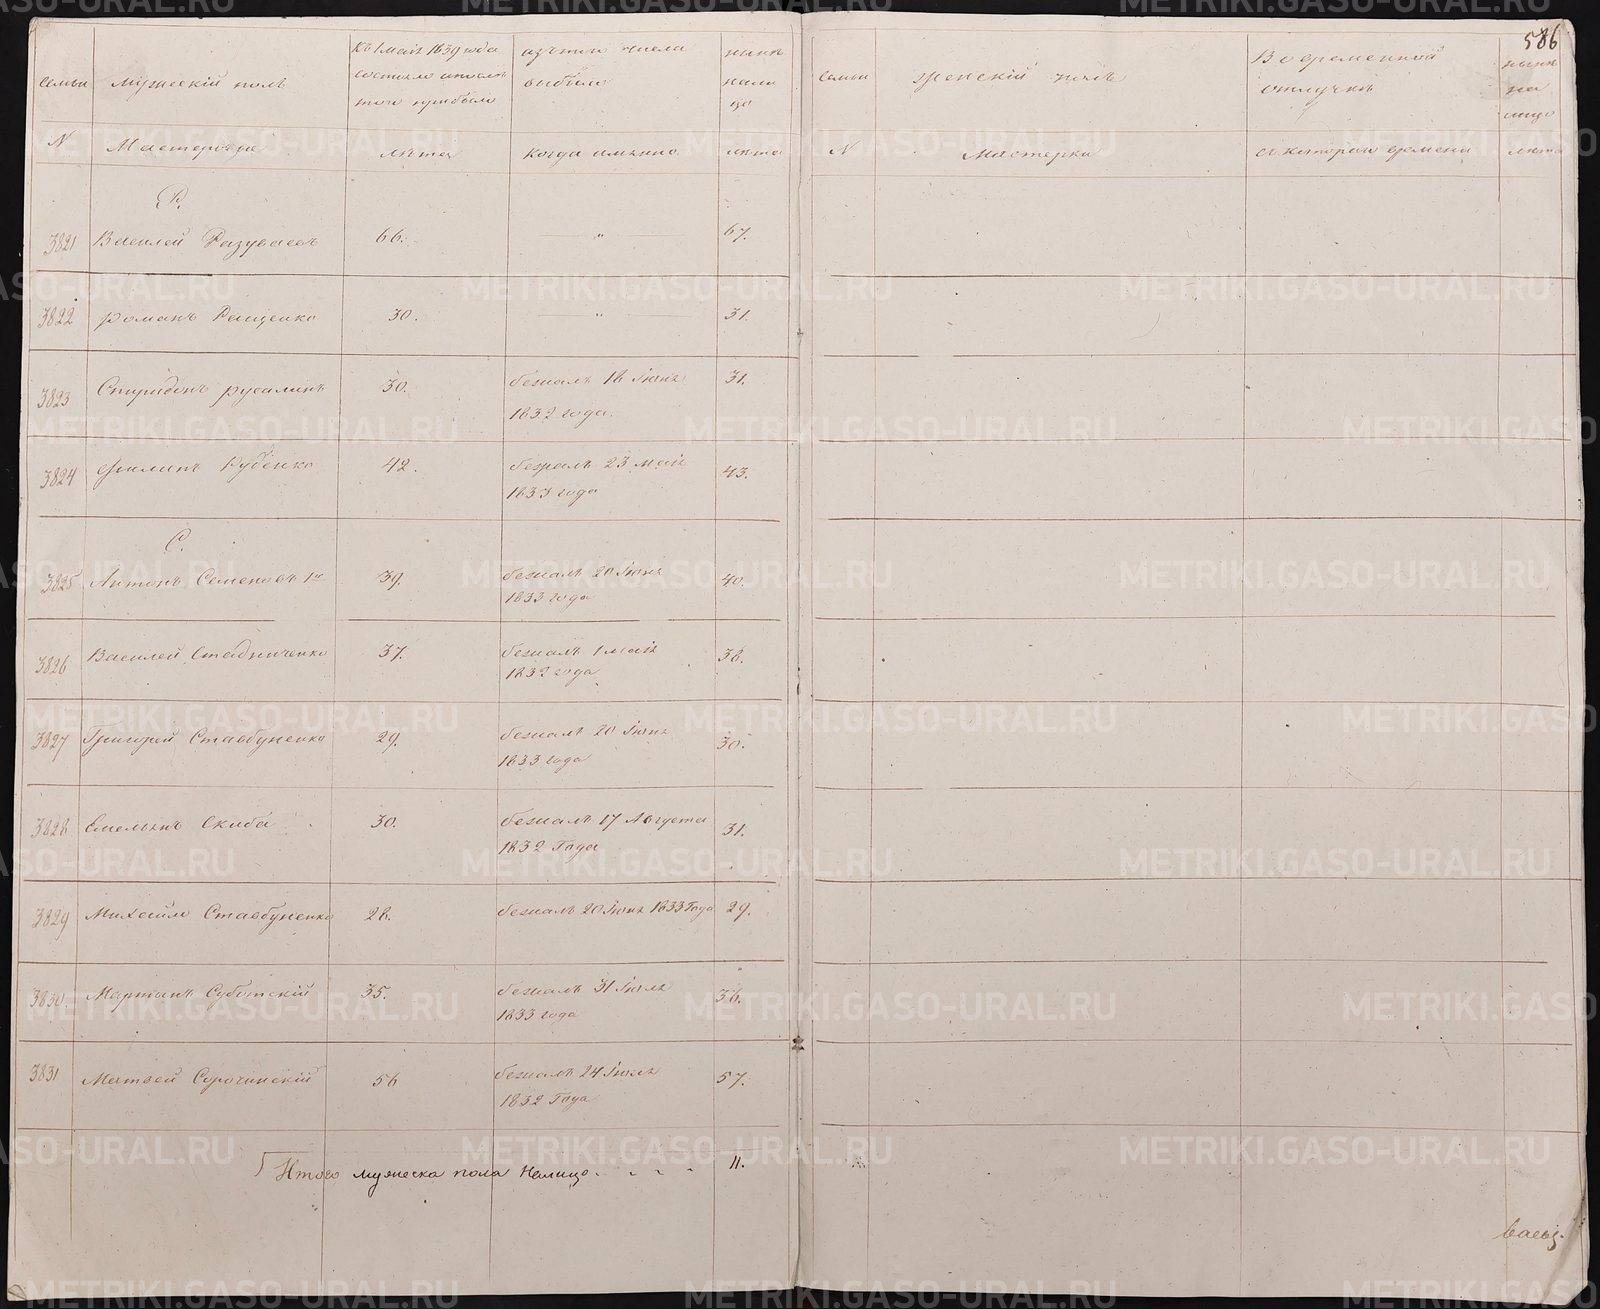 586
семьи
мужескій полъ
Къ 1 маія 1839 года
состояло и после
того прибыло
изъ того числа
выбыло
ныне
нали
цо
семьи
женскій полъ
Во временной
отлучке
ныне
на
лицо
N
Мастеровые
лета
когда имянно
лета
N
Мастерки
съ котораго времени
лета
Р.
3821 Василей Разуваевъ 66. „ 67.
3822 Романъ Ращенко 30. „ 31.
3823 Спиридонъ Русалинъ 30. бежалъ 18 Іюня 31.
1832 года.
3824 Филипъ Руденко 42. бежалъ 23 маія 43.
1833 года
С.
3825 Антонъ Семеновъ 1й 39. бежалъ 20 Іюня 40.
1833 года
3826 Василей Стадниченко 37. бежалъ 1 маія 38.
1832 года
3827 Григорей Ставбуненко 29. бежалъ 20 Іюня 30.
1833 года
3828 Емельянъ Скиба 30. бежалъ 17 Августа 31.
1832 Года
3829 Михайло Ставбуненко 28. бежалъ 20 Іюня 1833 Года 29.
3830. Мартынъ Суботскій 35. бежалъ 31 Іюля 36.
1833 года
3831 Матвей Сорочинскій 56 бежалъ 24 Іюля 57.
1832 Года
Итого мужеска пола Налицо 11.
METRIKI.GASO-URAL.RU